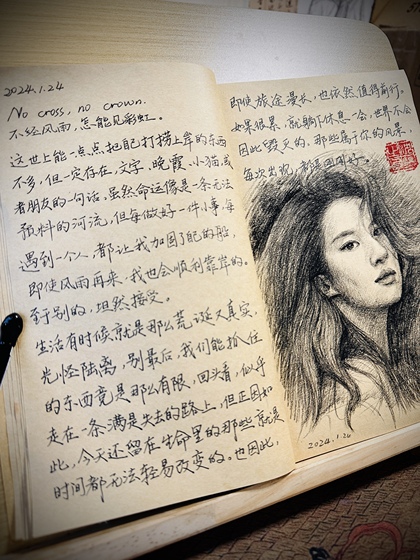 2024.1.24
No cross, no crown.
不经风雨，怎能见彩虹。
这世上能一点点把自己打捞上岸的东西
不多，但一定存在，文字，晚霞，小猫或
者朋友的一句话，虽然命运像是一条无法
预料的河流，但每做好一件小事，每
遇到一个人，都让我加固了自己的船，
即使风雨再来，我也会顺利靠岸的。
至于别的，坦然接受。
生活有时候就是那么荒诞又真实，
光怪陆离，到最后，我们能抓住
的东西竟是那么有限，回头看，似乎
走在一条满是失去的路上，但正因如
此，今天还留在生命里的那些就是
时间都无法轻易改变的。也因此，
即使旅途漫长，也依然值得前行。
如果很累，就躺下休息一会，世界不会
因此毁灭的，那些属于你的风景
每次出现，都是刚刚好。
2024.1.24